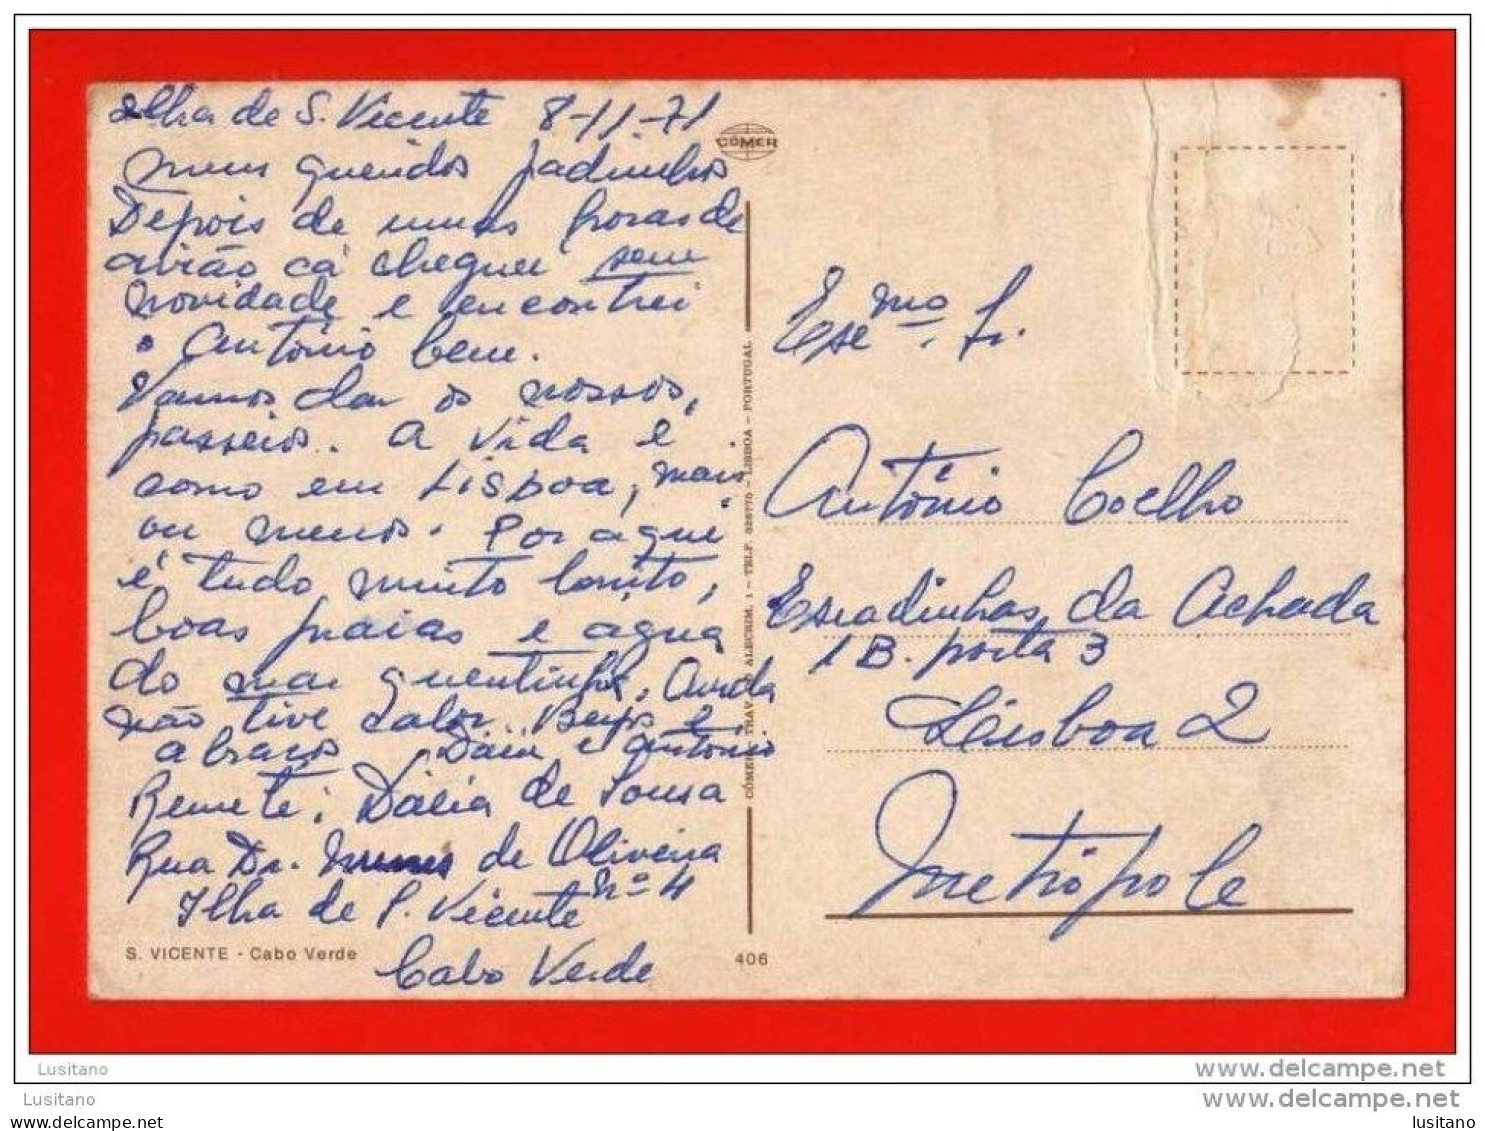 Ilha de S. Vicente 8-11-71
Meus queridos padinhos
Depois de umas horas de
avião cá cheguei sem
novidade e encontrei
o António bem.
Vamos dar os nossos,
passeios. A vida é
como em Lisboa, mais
ou menos. Por aqui
é tudo muito bonito,
boas praias e agua
do mar quentinha. Ainda
não tive calor. Beijos e
abraços Dália e António
Remete: Dália de Sousa
Rua Dr. Nunes de Oliveira
nº 4
Ilha de S. Vicente
Cabo Verde
S. VICENTE - Cabo Verde
406
CÓMER
CÓMER - TRAV. DO ALECRIM, 1 - TELF. - LISBOA - PORTUGAL
Exmo. Sr.
António Coelho
Escadinhas da Achada
1 B. porta 3
Lisboa 2
Metrópole
Lusitano
www.delcampe.net
Lusitano
www.delcampe.net
lusitano
lusitano